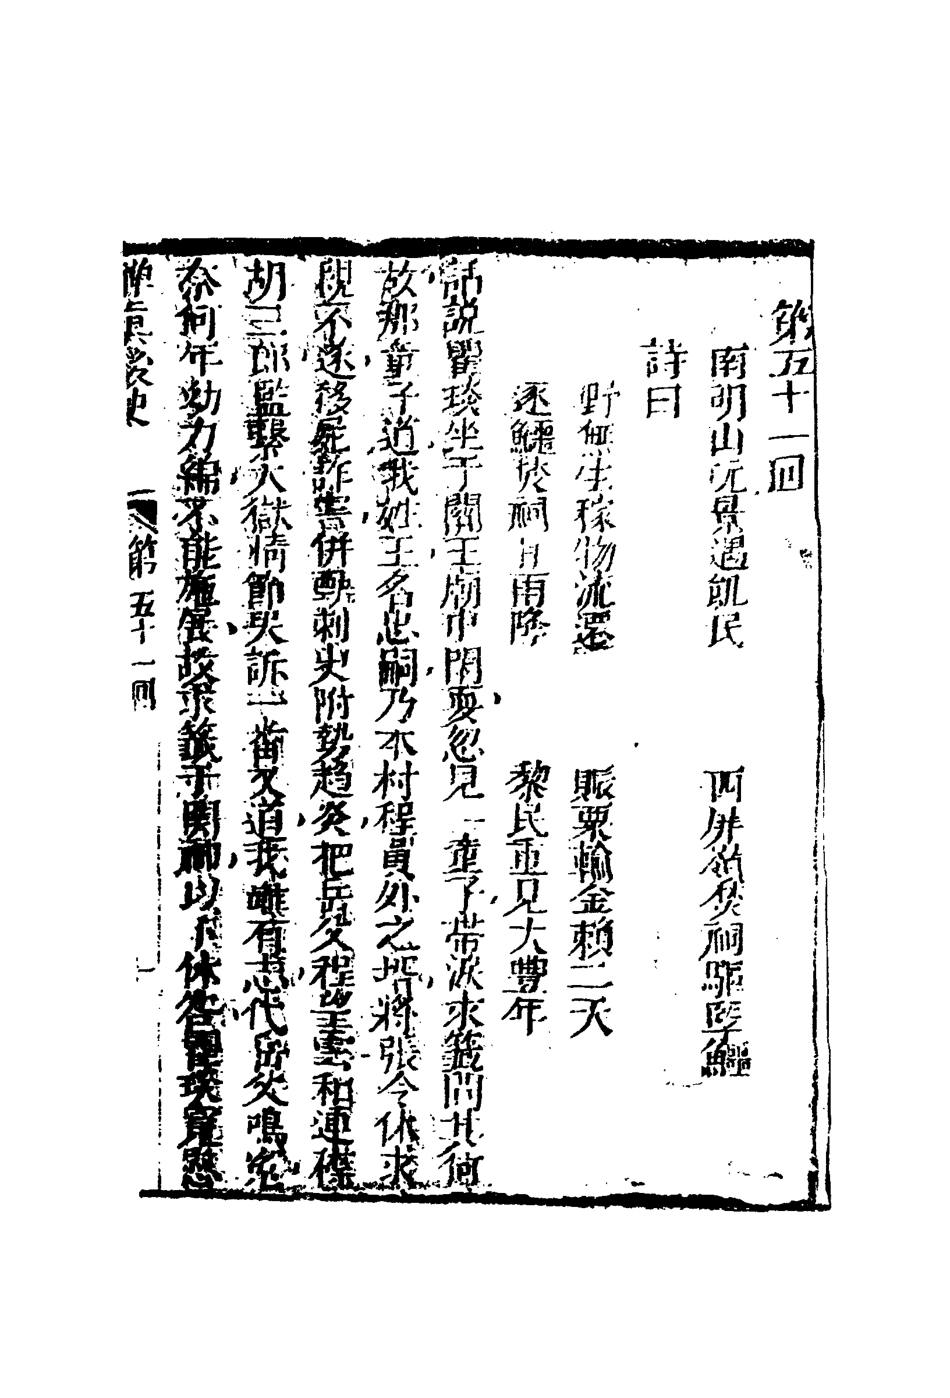 第五十一回
南明山沅景遇飢民　西屏嶺焚祠驅巨鱷
詩曰
野無生稼物流遷　賑粟輸金賴二天
逐鱷焚祠甘雨降　黎民重見大豐年
話說瞿琰坐于關王廟中閑耍忽見一童子帶淚求籤問其何
故那童子道我姓王名忠嗣乃本村程員外之壻將張令休求
親不遂移屍詐害併動刺史附勢趨炎把岳父程望雲和連襟
胡三郎監繫大獄情節哭訴一番又道我雖有志代岳父鳴寃
奈何年幼力綿不能施展故求籤于關神以卜休咎瞿琰寬慰
禪眞後史　第五十一回　一